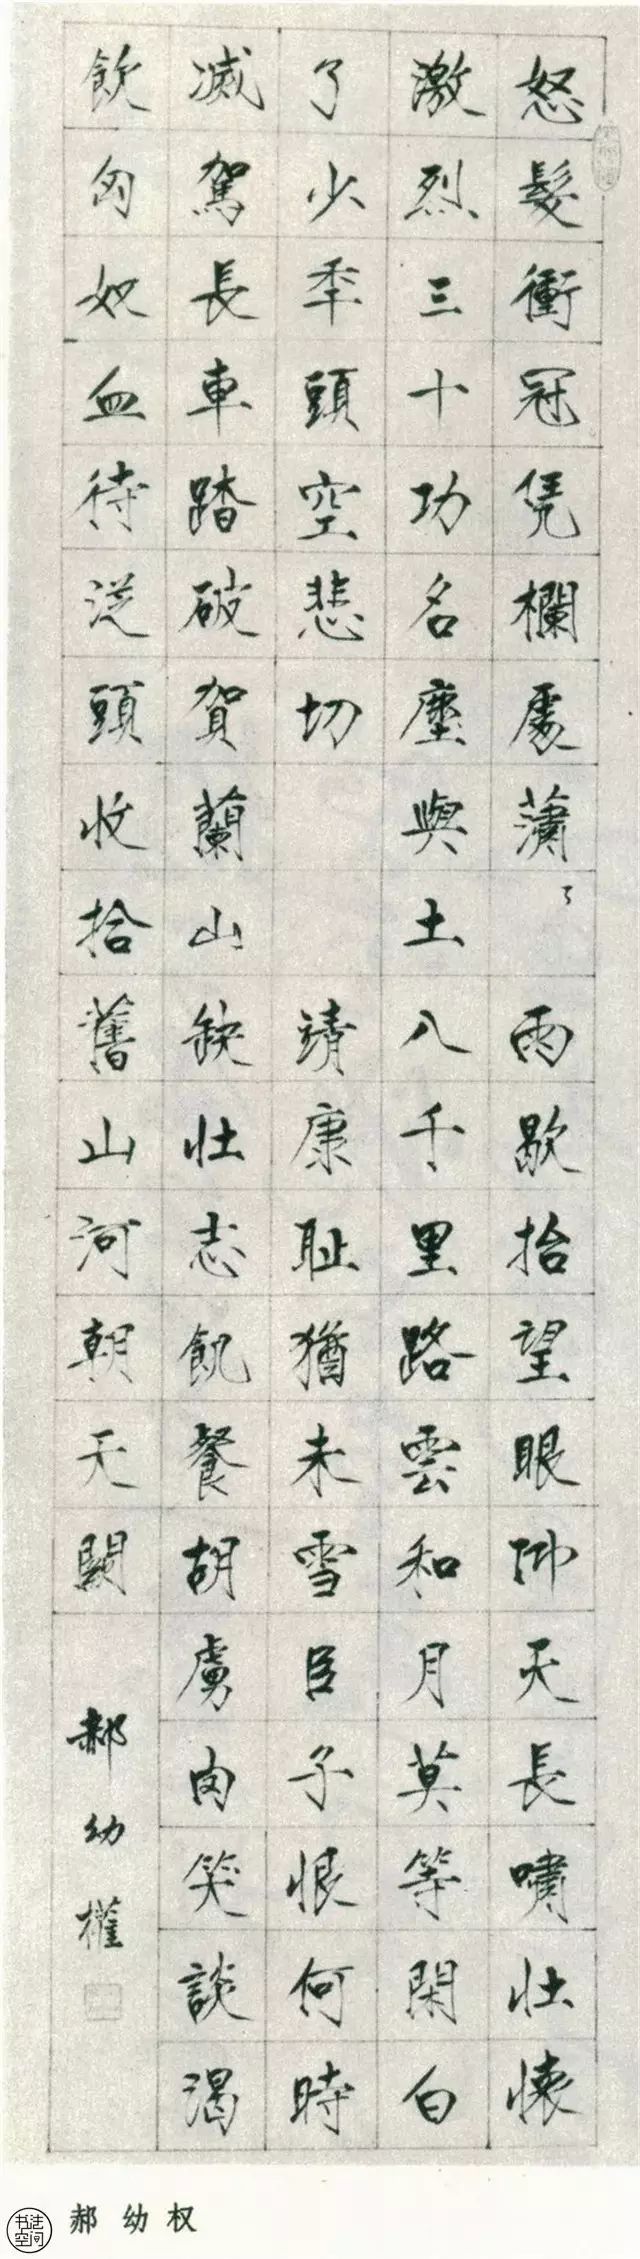 怒髮衝冠凭欄處瀟々雨歇抬望眼仰天長嘯壯懷
激烈三十功名塵與土八千里路雲和月莫等閑白
了少年頭空悲切靖康耻猶未雪臣子恨何時
滅駕長車踏破賀蘭山缺壯志飢餐胡虜肉笑談渴
飲匈奴血待從頭收拾舊山河朝天闕
郝幼權
郝幼权
书法空间